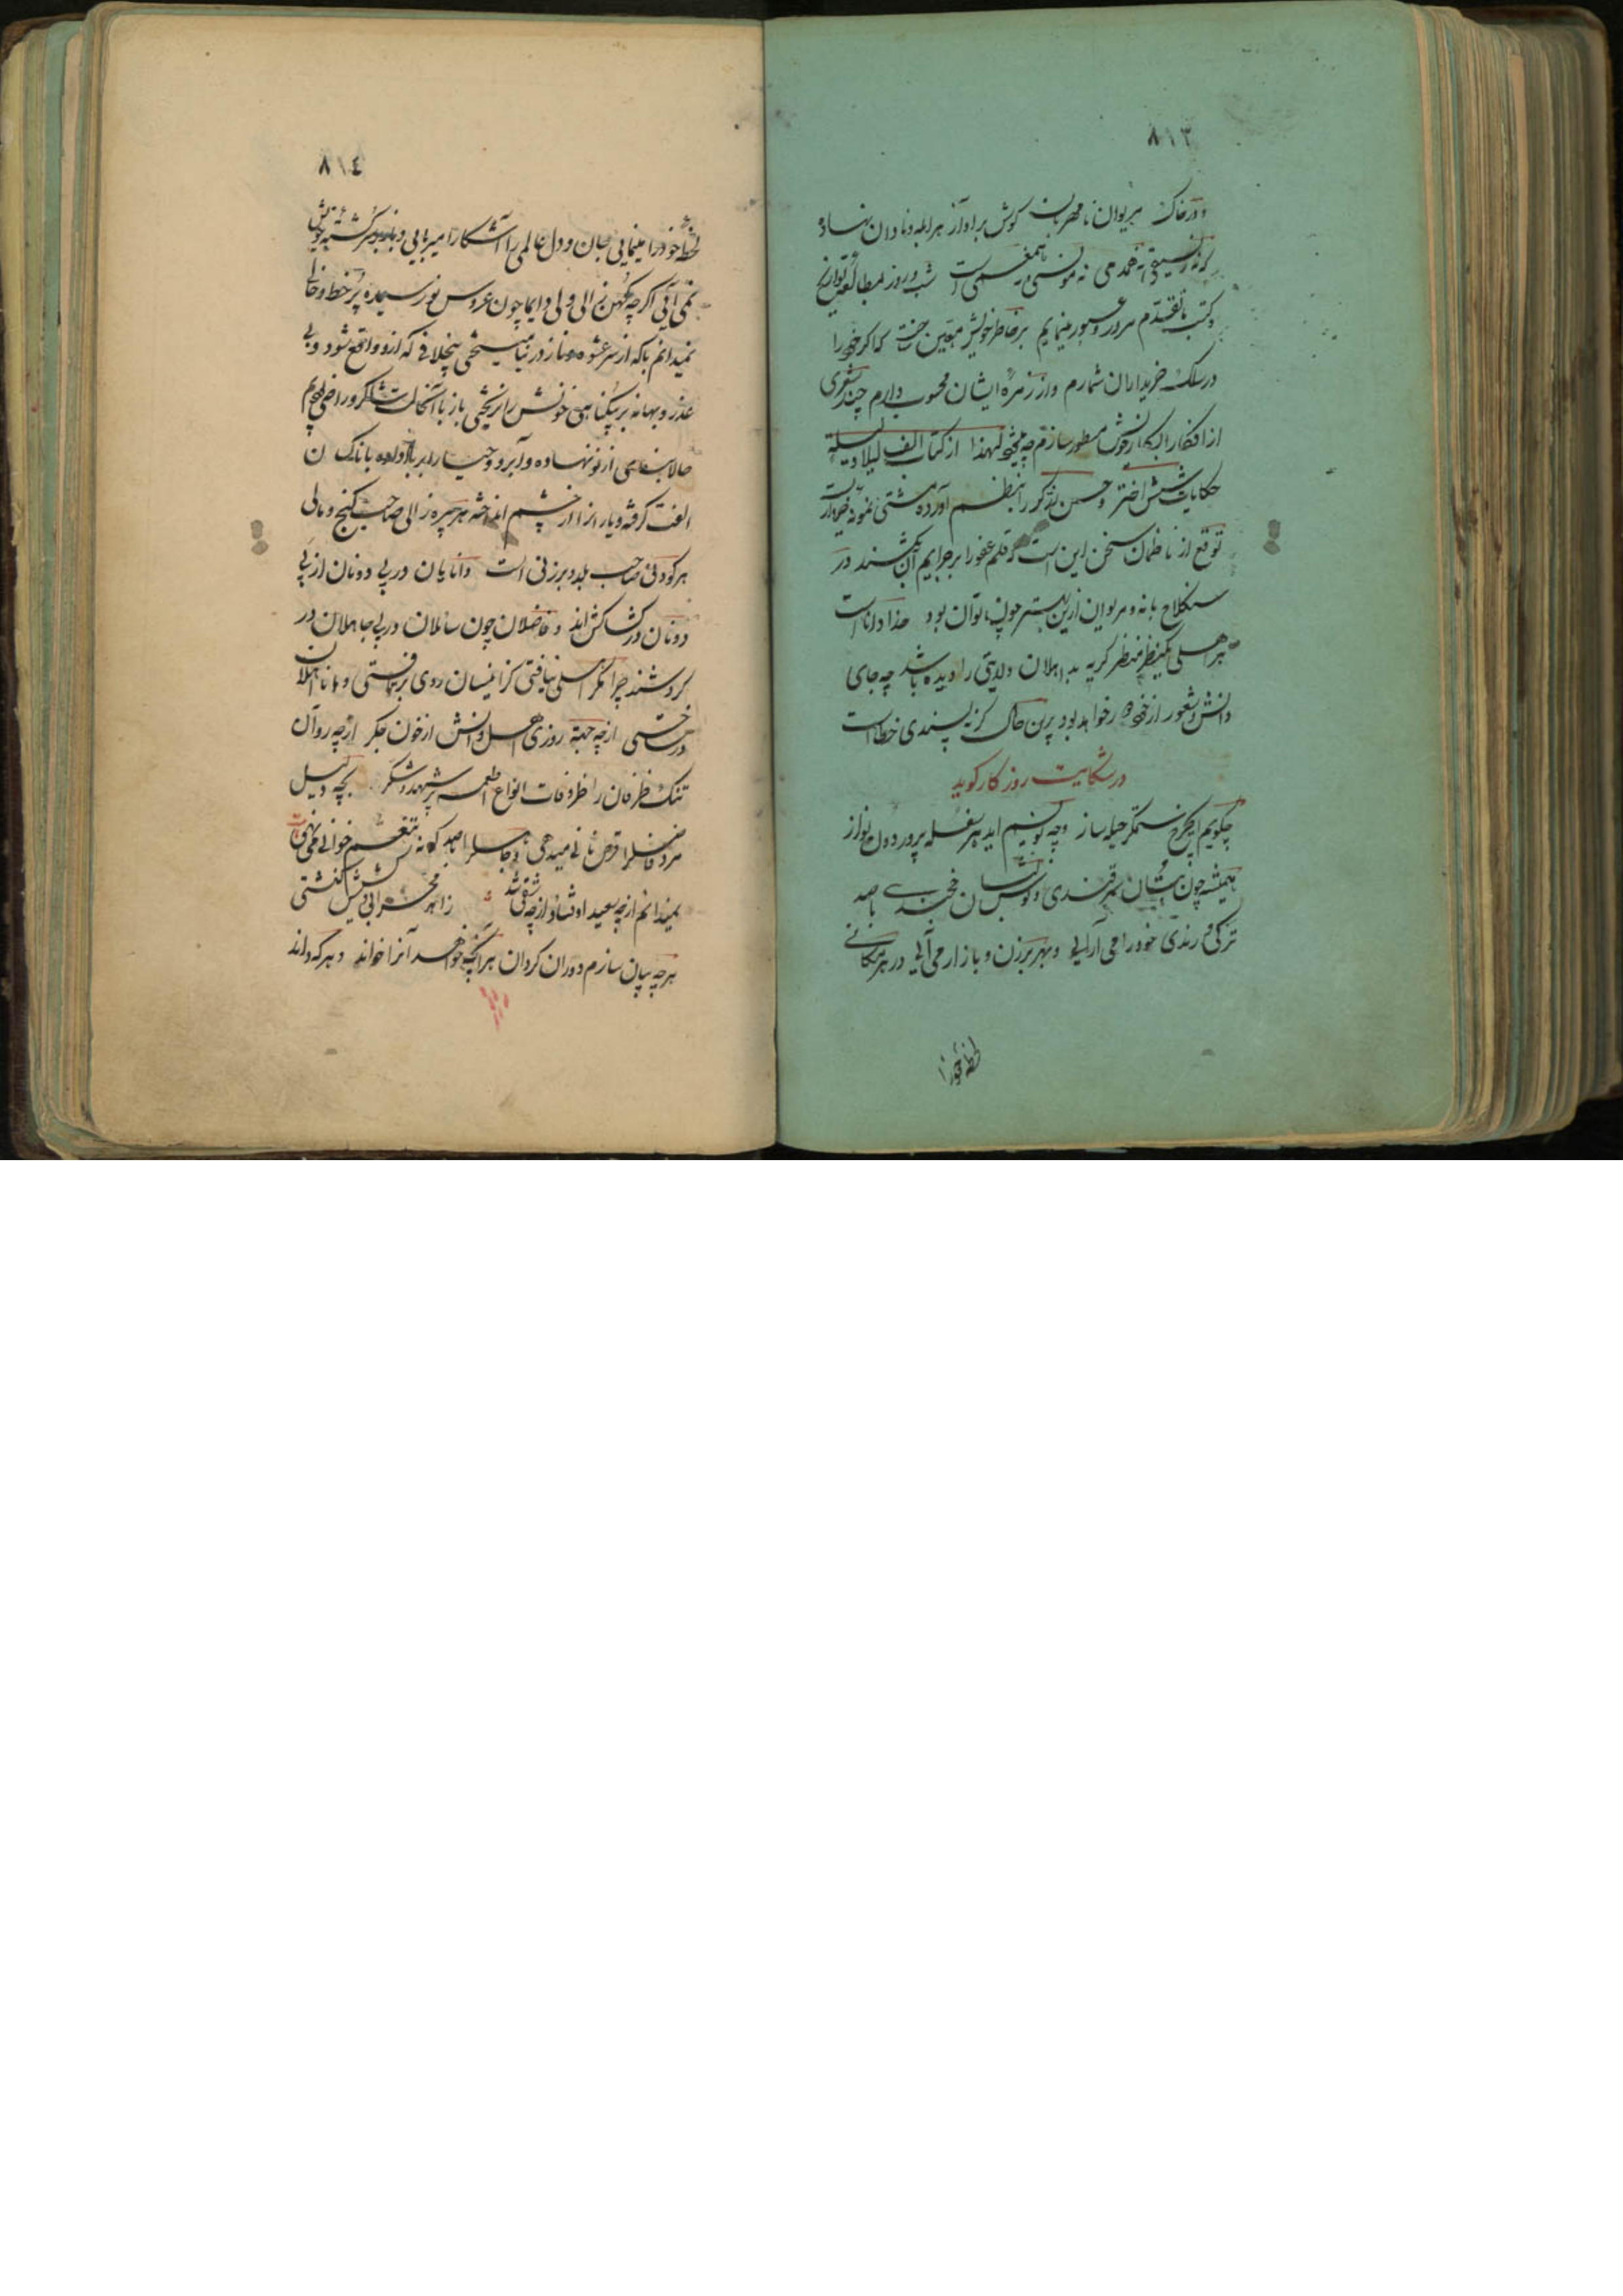 ٨١٣
و در خاک مریوان نامهربان گوش بر آواز هر ابله و نادان نهاده
که نه رفیقی نه همدمی نه مونسی نه همنفسی است شب و روز بمطالعه تواریخ
و کتب ما تقدم مرور و عبور مینمایم بر خاطر خویش معین ساخت که اگر خود را
در سلک خریداران شمارم و از زمره ایشان محسوب دارم چند شعری
از افکار ابکار خویش مسطور سازم چه میشود لهذا از کتاب الف لیلة و لیلة
حکایات شش اختر و حسن را بنظم آورده مشتی نمونه خروار است
توقع از ناظمان سخن این است که قلم عفو را بر جرایم آن بکشند در
سنگلاخ بانه و مریوان ازین بهتر چون توان بود خدا داناست
هر اهلی یکنظر منظر کریه بد اهلان ولایتی را دیده باشد چه جای
دانش و شعور از خود خواهد بود برین خاک گر پسندی خطاست
در شکایت روزگار گوید
چگویم ای چرخ ستمگر حیله ساز و چه نویسم ای سفله پرور دون نواز
همیشه چون بتان سمرقندی و نوش لبان خجندی با صد
ترکی و رندی خود را می آرایی و بهر برزن و بازار می آیی در هر مکانی
لحظه خود را
٨١٤
لحظه خود را مینمایی جان و دل عالمی را آشکارا میربایی و باز بر سر کشته خویش
نمی آئی اگر چه کهن زالی ولی دایما چون عروس نو رسیده پر خط و خالی
نمیدانم باکه از سر عشوه و ناز در نیامیختی بخلافی که ازو واقع شود و بی
عذر و بهانه بر بیگناهی خونش را نریختی باز با آنحالت شاکر و راضی بودیم
حالا بنایی از نو نهاده و آبرو و حیا را بر باد داده با ناکسان
الفت گرفته و یاران را از چشم انداخته هر پیره زالی صاحب گنج و مالی
هر کودنی صاحب بلد و برزنی است دانایان در پی دونان از پی
دو نان در کشاکش اند و فاضلان چون سائلان در پی جاهلان در
گردشند چرا مگر اهلی نیافتی کز اینسان روی بر تافتی و با نا اهلان
در ساختی از چه جهة روزی اهل دانش از خون جگر از چه رو آن
تنک ظرفان را ظروفات انواع اطعمه پر شهد و شکر بچه دلیل
مرد فاضل را قرص نانی نمیدهی و جاهل را با صد گونه تنعم خوانی می نهی
نمیدانم از چه سعید اوفتاد و از چه شقی شد زاهد محرابی و کشیش کنشتی
هر چه بیان سازم دوران گردان هر آنچه خواهد آنرا خواند و هر که داند